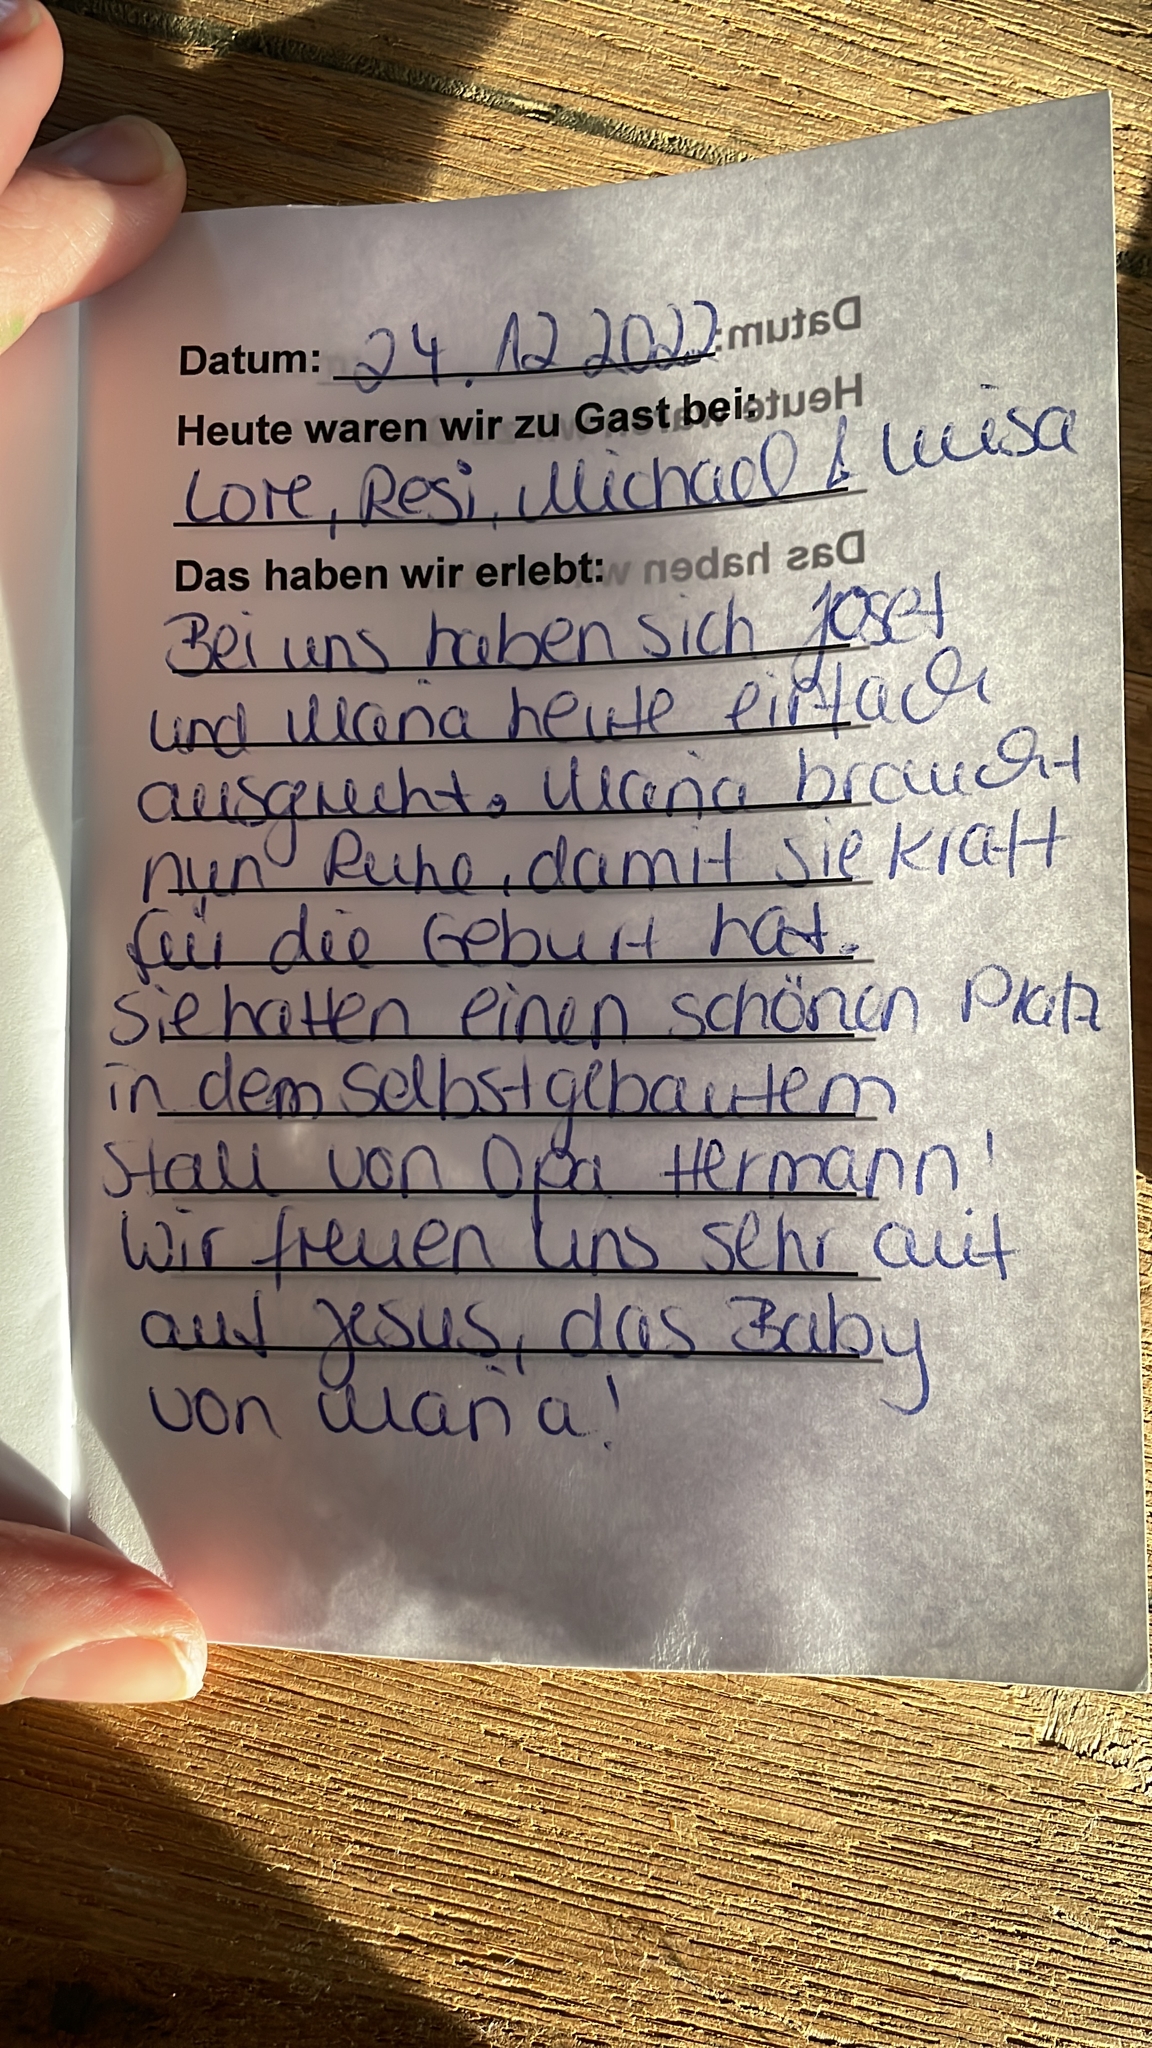 Datum: 24.12 2022
Heute waren wir zu Gast bei:
Lore, Resi, Michael & Luisa
Das haben wir erlebt:
Bei uns haben sich Josef
und Maria heute einfach
ausgeruht. Maria braucht
nun Ruhe, damit sie Kraft
für die Geburt hat.
Sie hatten einen schönen Platz
in dem selbstgebautem
Stall von Opa Hermann!
Wir freuen uns sehr auf
auf Jesus, das Baby
von Maria!